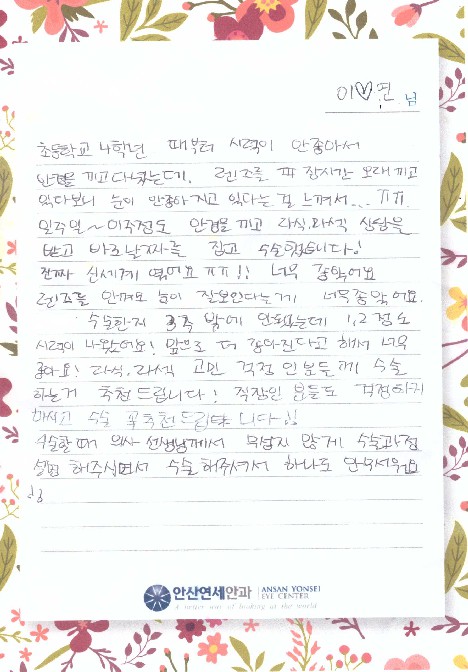 이♡진 님
초등학교 4학년 때부터 시력이 안좋아서
안경을 끼고다녔는데, 렌즈를 장시간 오래끼고
있다보니 눈이 안좋아지고 있다는걸 느껴서...ㅠㅠ
일주일~이주정도 안경을 끼고 라식,라섹 상담을
받고 바로 날짜를 잡고 수술했습니다!
진짜 신세계 였어요 ㅠㅠ!! 너무 좋았어요
렌즈를 안껴도 눈이 잘보인다는게 너무좋았어요.
수술한지 3주 밖에 안됐는데 1.2정도
시력이 나왔어요! 앞으로 더 좋아진다고 해서 너무
좋아요! 라식,라섹 고민 걱정 인분들께 수술
하는거 추천드립니다! 직장인 분들도 걱정하지
마시고 수술 꼭추천드립니다!!
수술할때 의사 선생님께서 무섭지 않게 수술과정
설명 해주시면서 수술해주셔서 하나도 안무서웠어요
!!
안산연세안과 ANSAN YONSEI
EYE CENTER
A better way of looking at the world